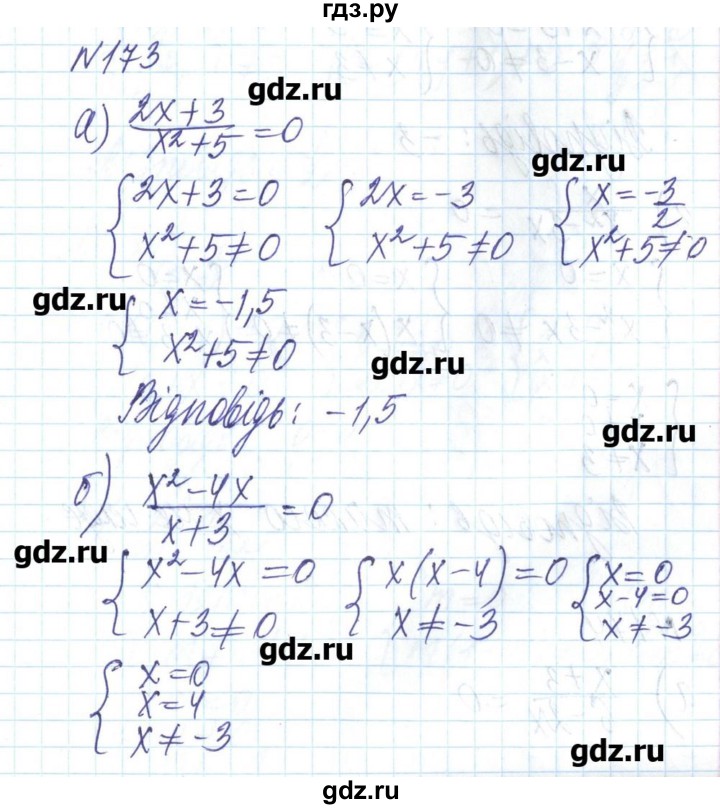 гдз.ру
N173
gdz.ru
а) (2x+3)/(x²+5) = 0
gdz.ru
{2x+3=0 {2x=-3 {x=-3/2
{x²+5≠0 {x²+5≠0 {x²+5≠0
gdz.ru
{x=-1,5
{x²+5≠0
gdz.ru
Відповідь: -1,5
gdz.ru
б) (x²-4x)/(x+3) = 0
gdz.ru
{x²-4x=0 {x(x-4)=0 {x=0
x-4=0
{x+3≠0 {x≠-3 {x≠-3
gdz.ru
{x=0
x=4
{x≠-3
gdz.ru
gdz.ru